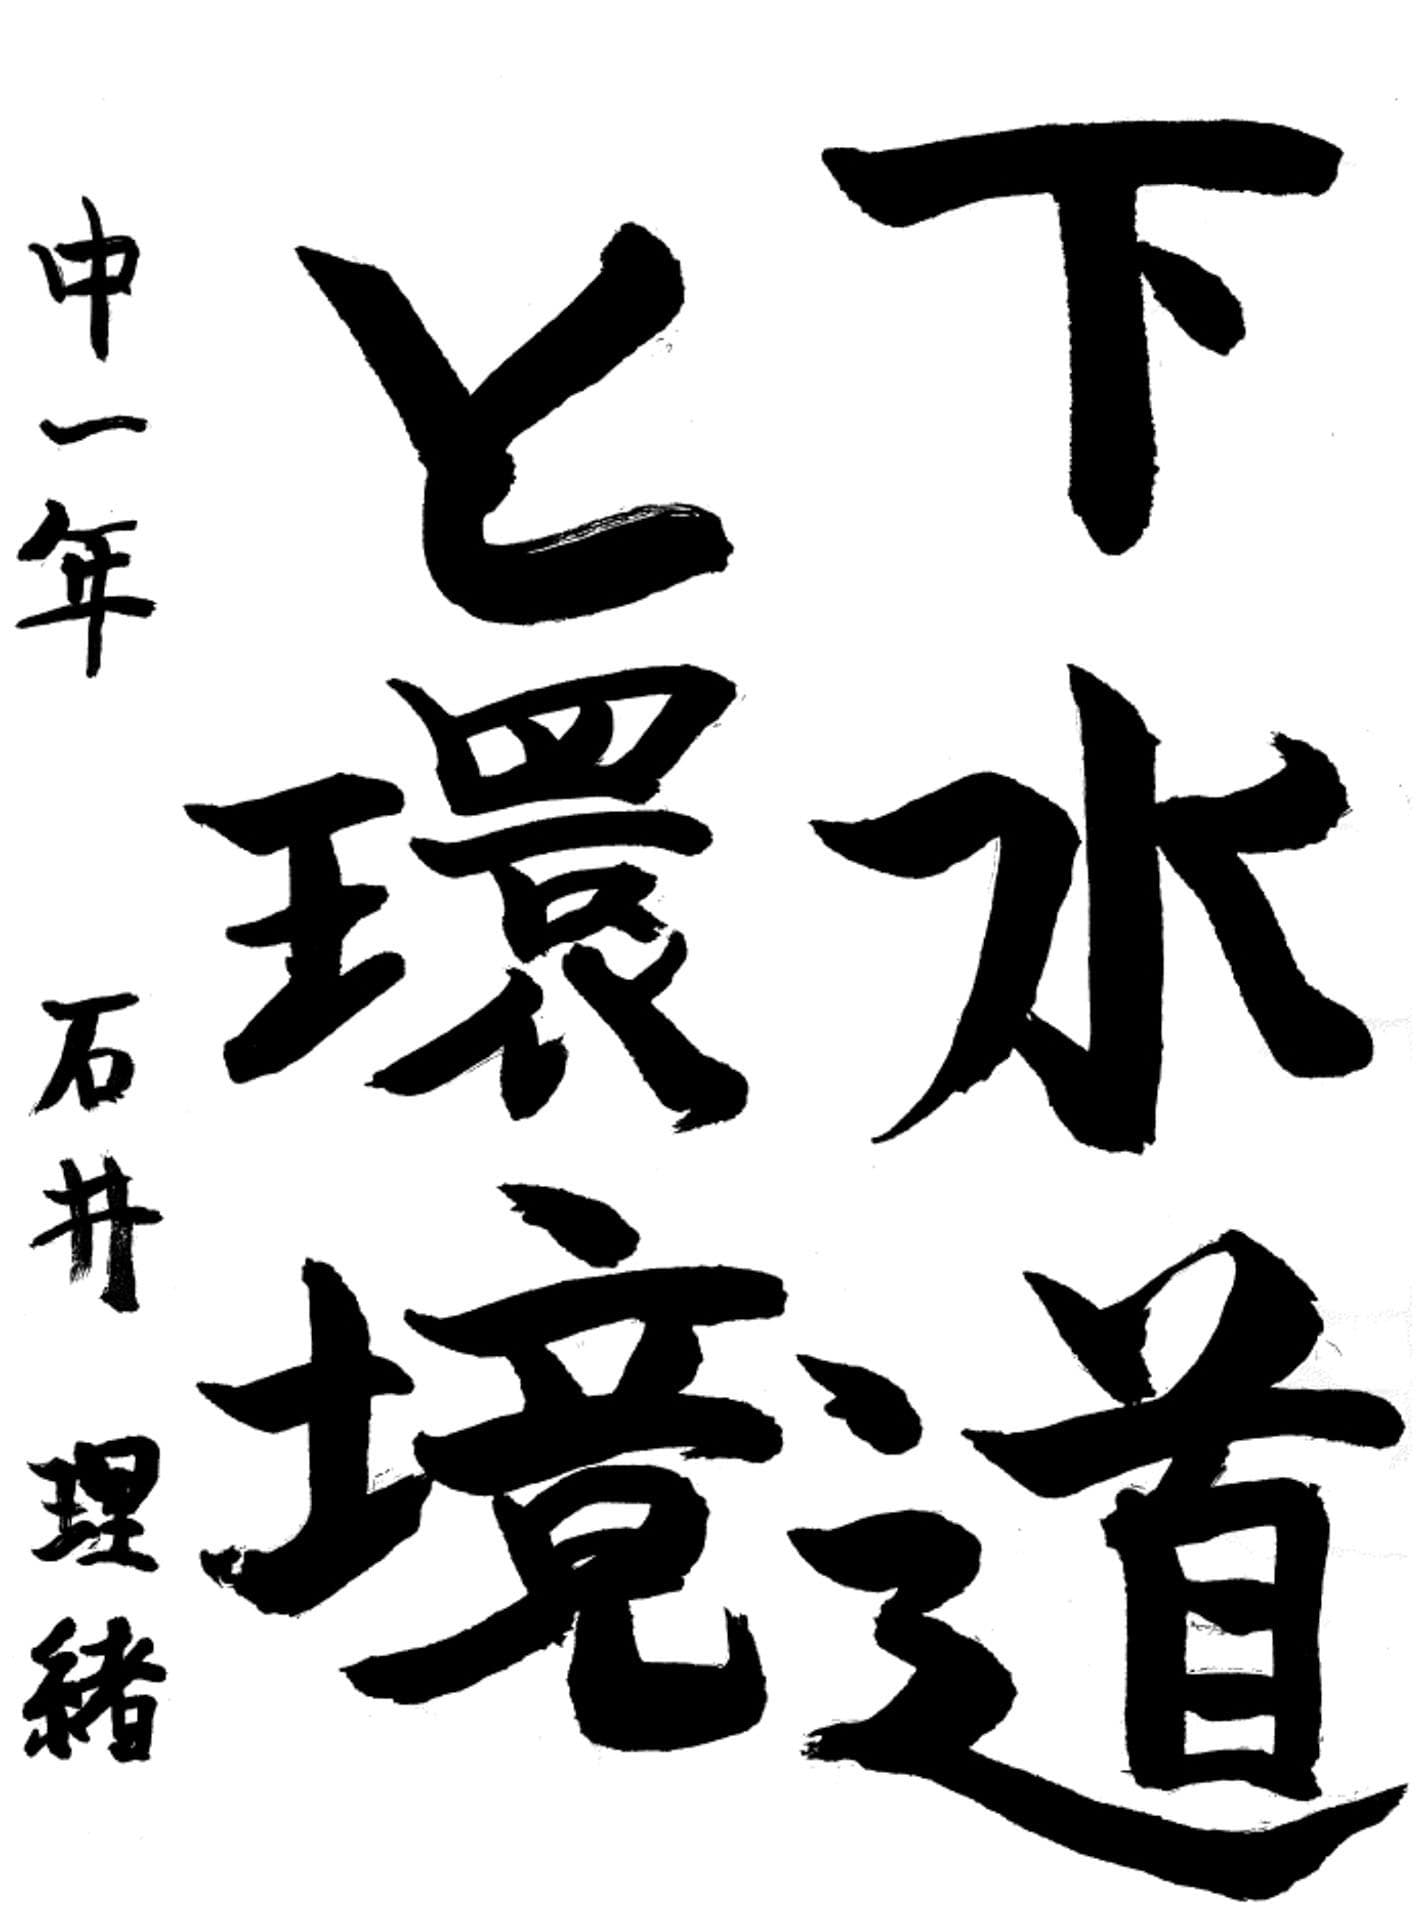 下水道
と環境
中一年 石井 理緒